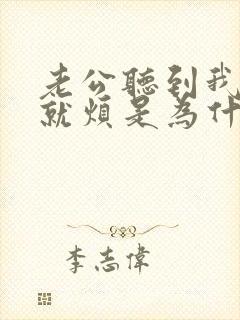 老公聽到我
就煩是為什
李志偉